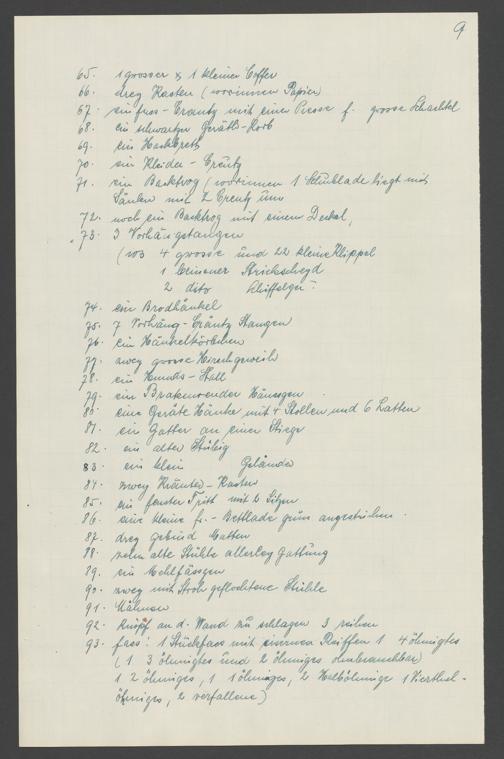 9
65. 1 grosser & 1 kleiner Coffer
66. drey Kasten (worinnen Papier)
67. ein fuss-Crantz mit einer Presse f. grosse Schachtel
68. ein schwartzer Geräths-Korb
69. ein Hackbrett
70. ein Kleider-Creutz
71. ein Backtrog (worinnen 1 Schublade liegt mit
Säulen mit 2 Creutz und
72. noch ein Backtrog mit einem Deckel,
73. 3 Vorhängstangen
(wo 4 grosse und 22 kleine Klippel
1 beinener
2 dito
74. ein Brodhänkel
75. 7 Vorhäng-Cräntz Stangen
76. ein Hänkelkörbchen
77. zwey grosse Hirschgeweih
78. ein Hunds-Stall
79. ein Bratenwender
80. eine Geräte Hänke mit 4 Stollen und 6 Latten
81. ein Gatter an einer Stiege
82. ein alter
83. ein klein Geländer
84. zwey Kräuter-Kasten
85. ein fenster Tritt mit 2 Sitzen
86. eine kleine f.-Bettlade grün angestrichen.
87. drey gebund Matten
88. alte Stühle allerley Gattung
89. ein Mehlfässgen
90. zwey mit Stroh geflochtene Stühle
91.
92. Knöpf an d. Wand zu schlagen 3 reihen
93. fass: 1 Stückfass mit eisernen Reiffen 1 4 öhmigtes
(1 3 öhmigtes und 2 öhmiges ohnbrauchbar)
1 2 öhmiges, 1 1 öhmiges, 2 Halböhmige 1 Vierthel-
öhmiges, 2 verfallene)